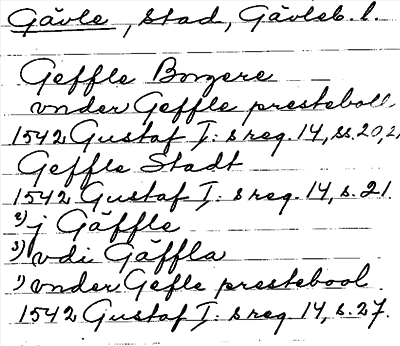 Gävle, stad, Gävleb. l.
Geffle Borgere
vnder Geffle presteboll
1542 Gustaf I: s reg. 14, ss. 20, 2
Geffle Stadt
1542 Gustaf I: s reg. 14, s. 21.
2) j Gäffle
3) vdi Gäffla
1) vnder Gefle prestebool
1542 Gustaf I: s reg. 14, s. 27.